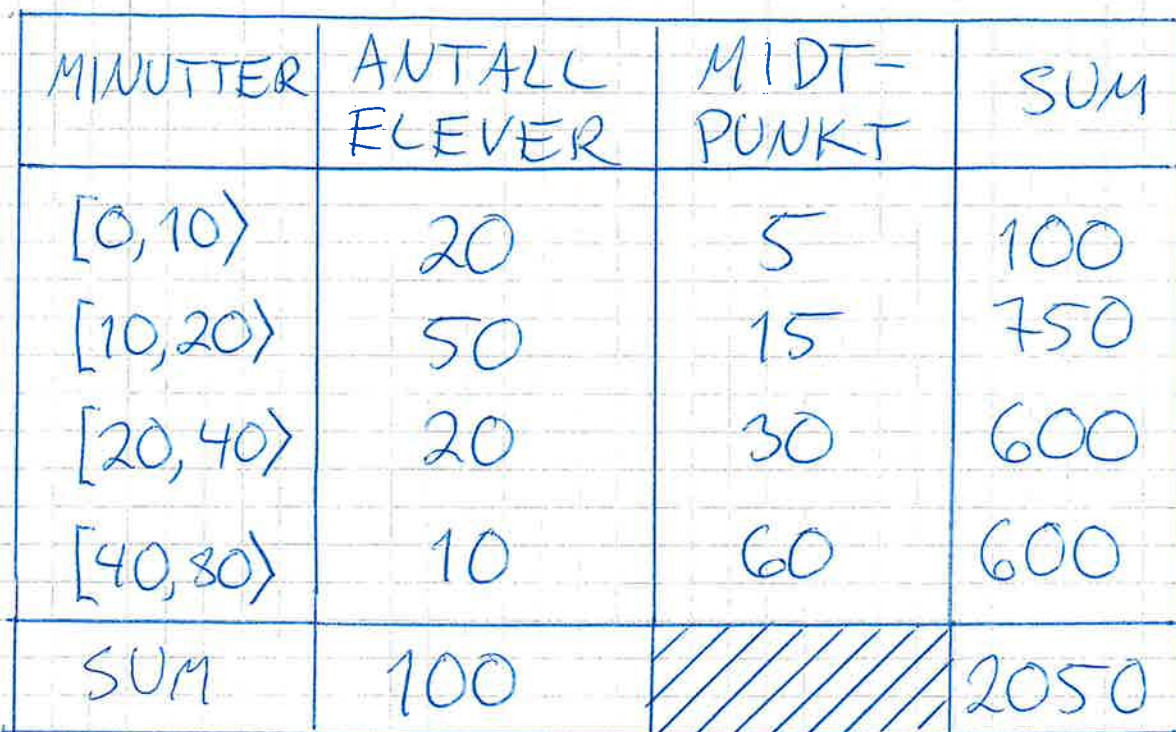 MINUTTER ANTALL ELEVER MIDT- PUNKT SUM
[0,10⟩ 20 5 100
[10,20⟩ 50 15 750
[20,40⟩ 20 30 600
[40,80⟩ 10 60 600
SUM 100 2050